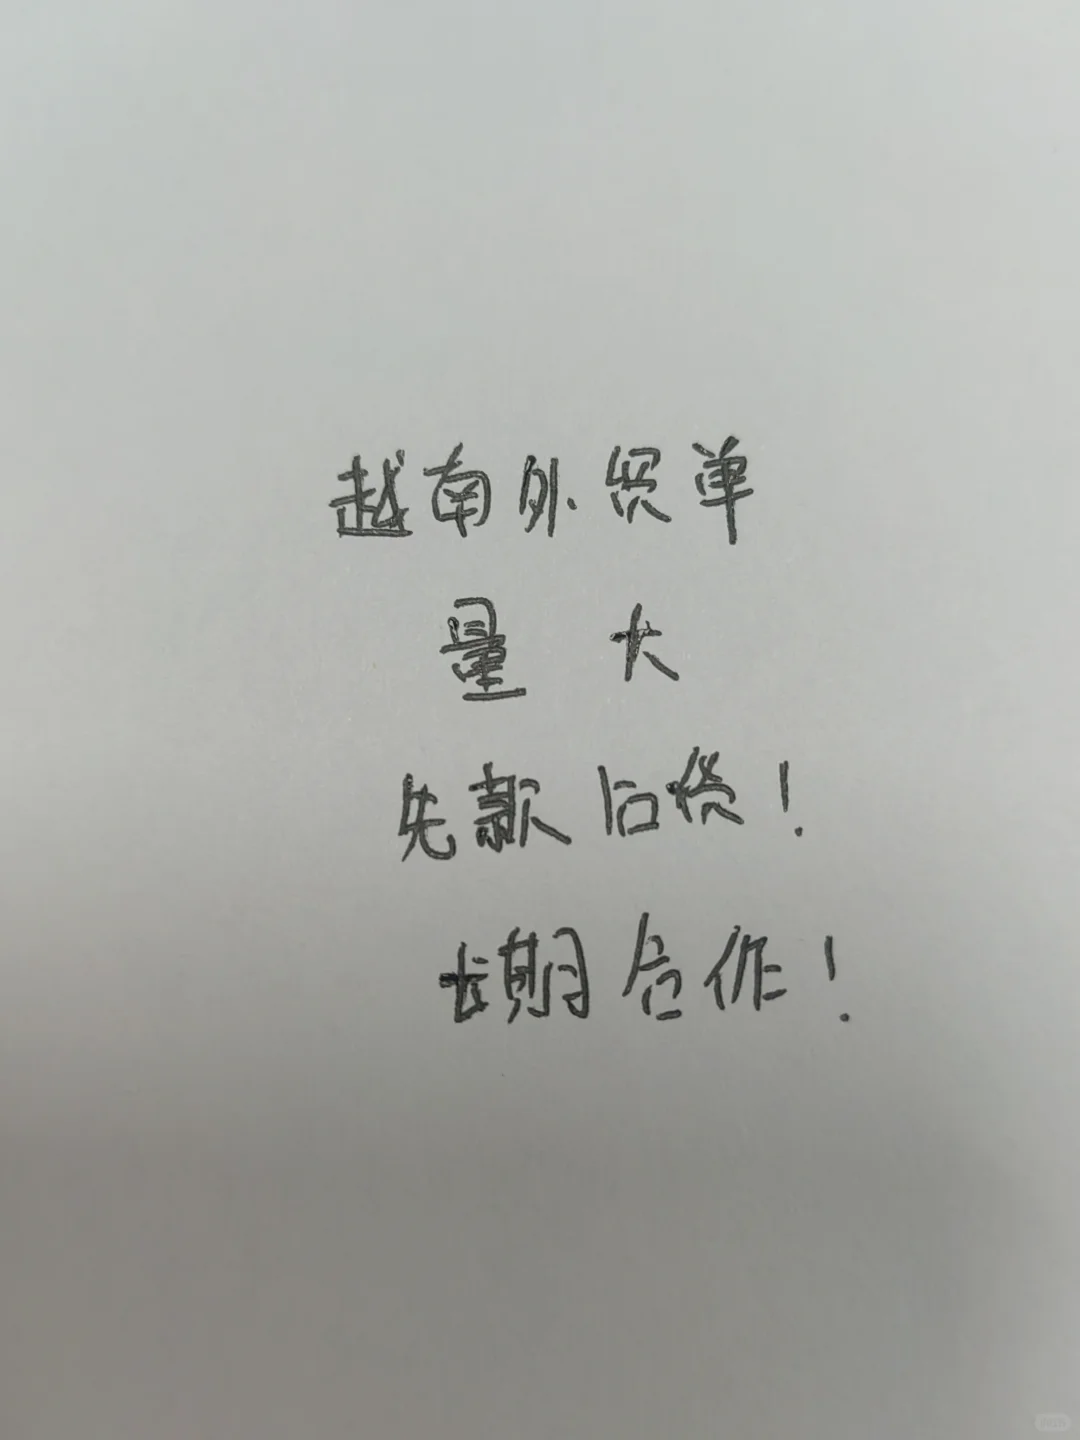 越南外贸单
量 大
先款后货！
长期合作！